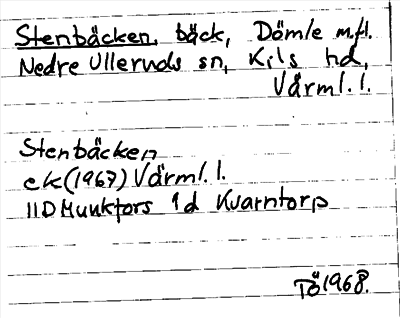 Stenbäcken, bäck, Dömle m.fl.
Nedre Ulleruds sn, Kils hd,
Värml. l.
Stenbäcken
ek(1967) Värml. l.
11D Munkfors 1d Kvarntorp
Tö 1968.